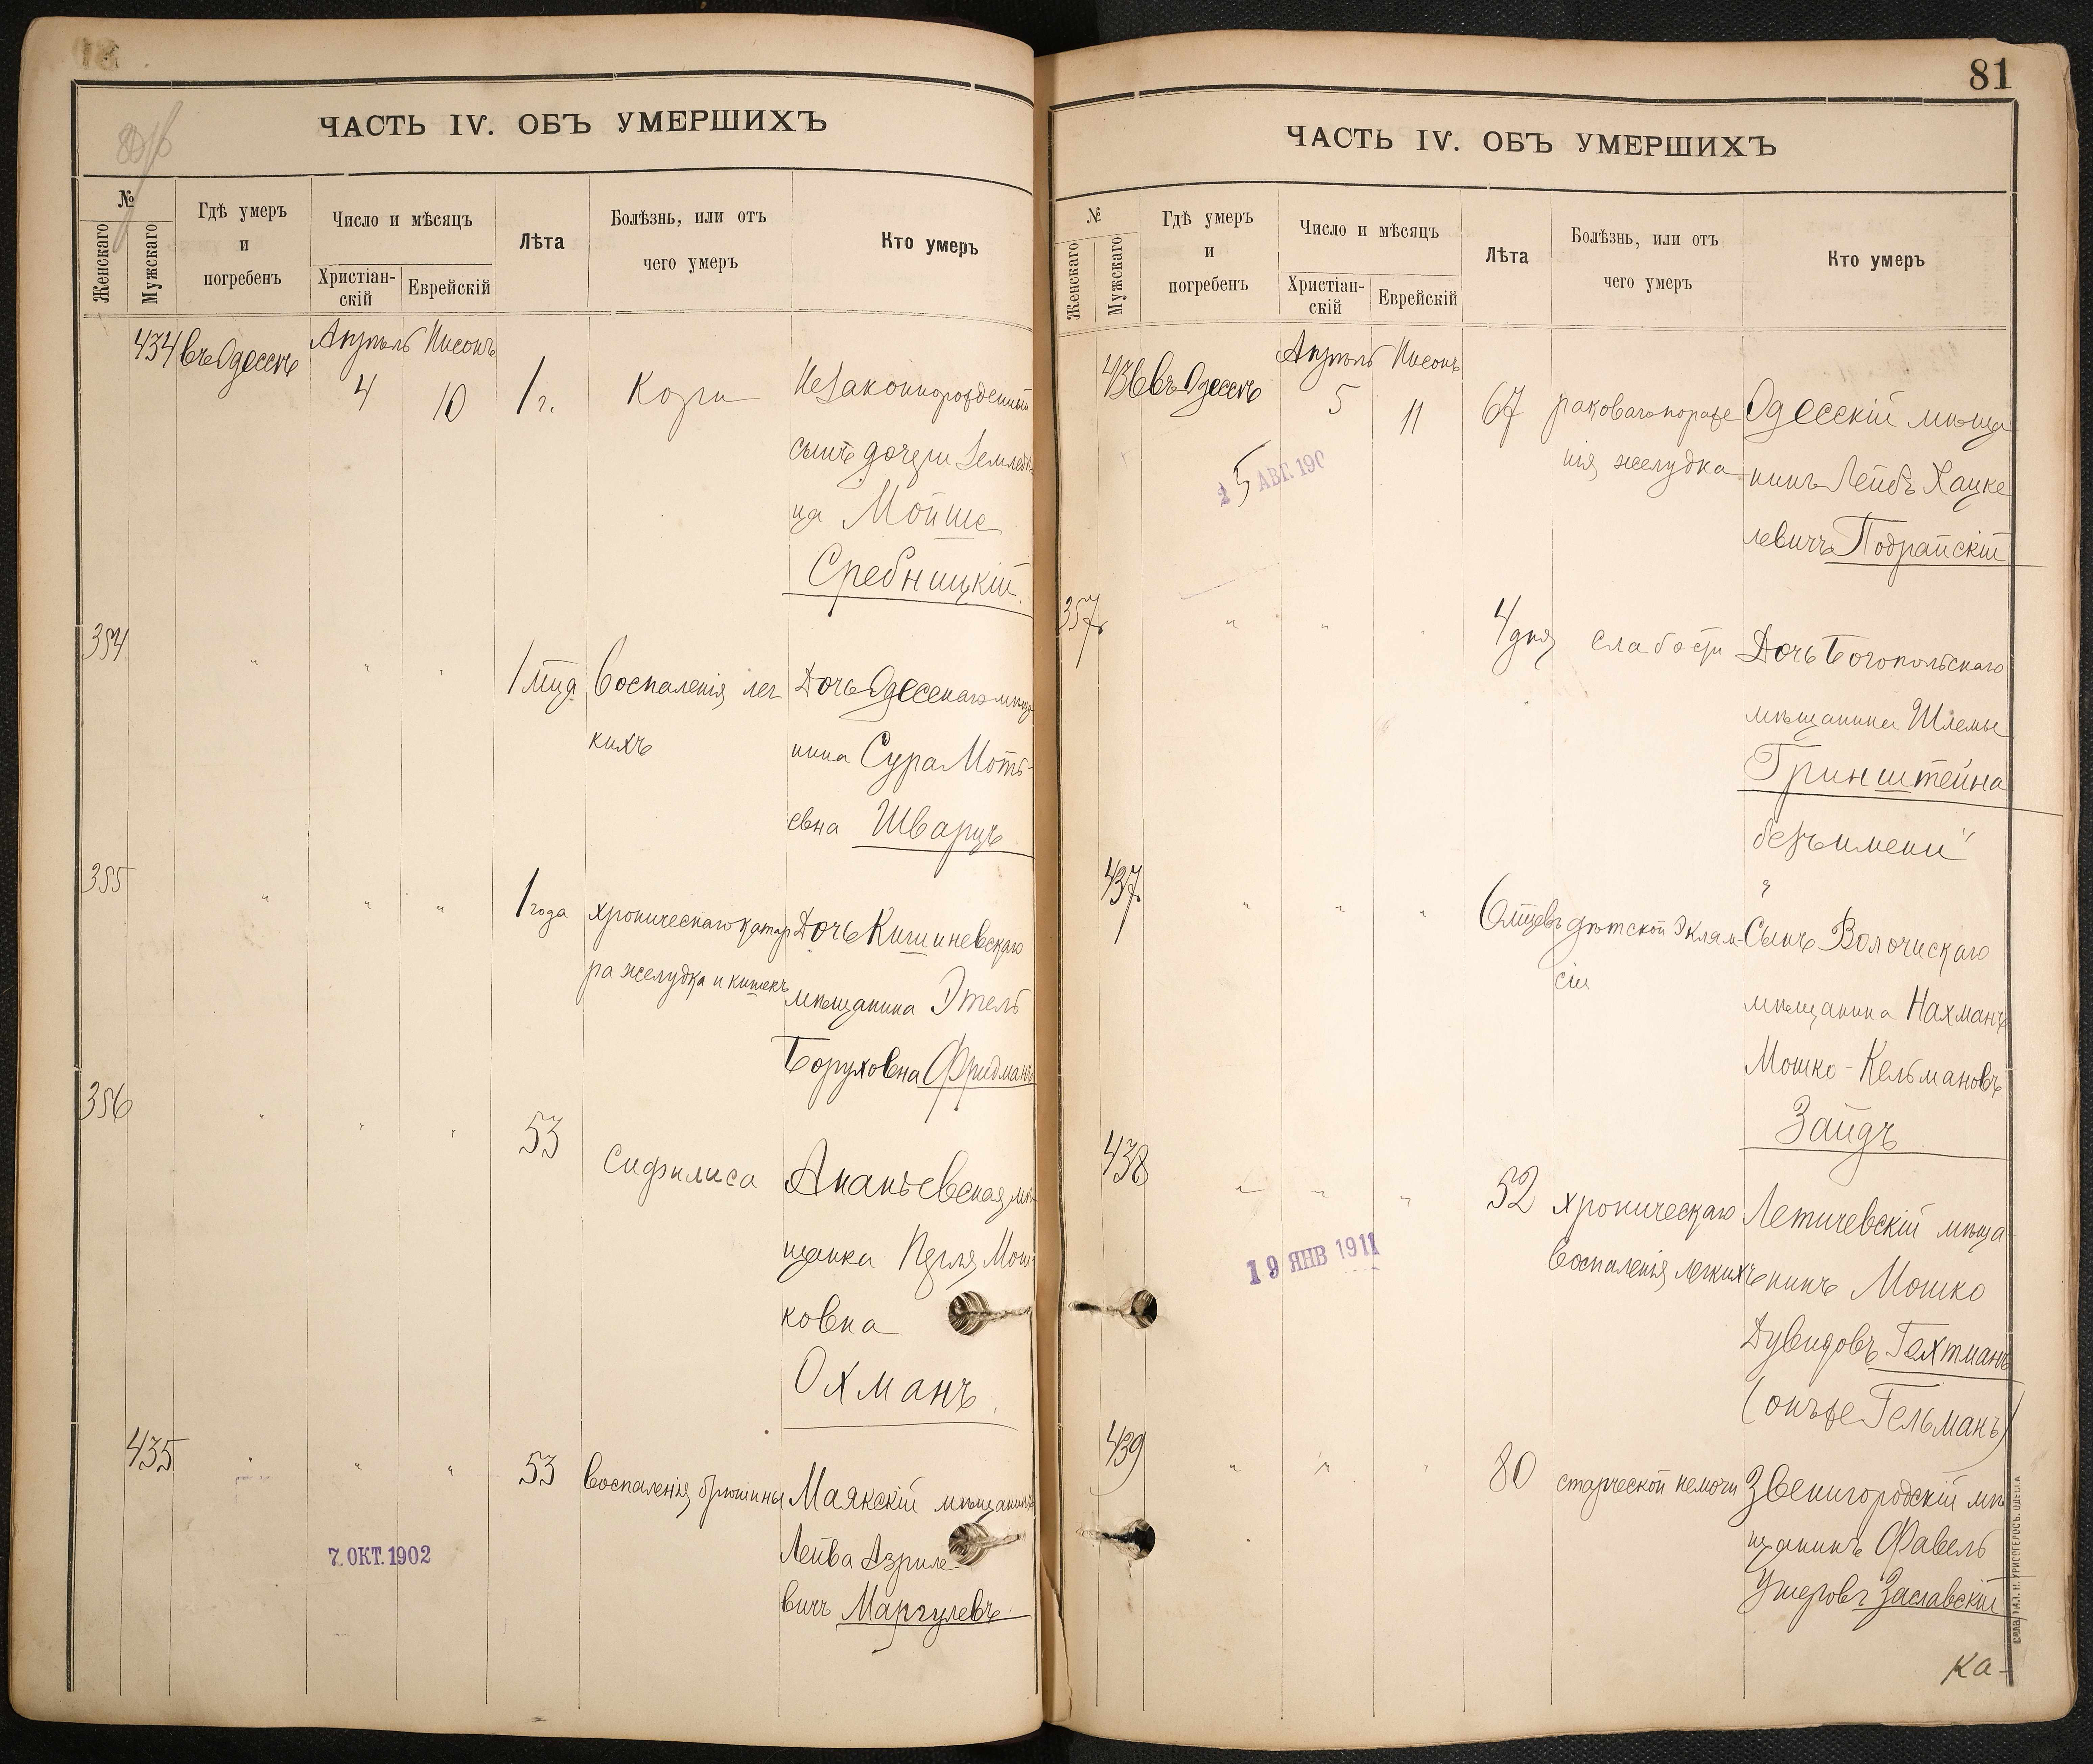 ЧАСТЬ IV. ОБЪ УМЕРШИХЪ
№
Женскаго
Мужскаго
Гдѣ умеръ
и
погребенъ
Число и мѣсяцъ
Христіан-
скій
Еврейскій
Лѣта
Болѣзнь, или отъ
чего умеръ
Кто умеръ
434 въ Одессѣ Апрѣль Нисонъ
4 10 1 г. Кори Незаконнорожденный
сынъ дочери Землевл
ца Мойше
Сребницкій.
354 " " " 1 мца Воспаленія лег Дочь Одесскаго мѣща
кихъ нина Сура Моть-
евна Шварцъ
355 " " " 1 года хроническаго катар Дочь Кишиневскаго
ра желудка и кишекъ мѣщанина Этель
Боруховна Фридманъ
356 " " " 53 Сифилиса Ананьевская мѣ-
щанка Перля Мош-
ковна
Охманъ.
435 " " " 53 Воспаленія брюшины Маякскій мѣщанинъ
Лейва Азриле-
вичъ Маргулевъ
7. ОКТ. 1902
81
ЧАСТЬ IV. ОБЪ УМЕРШИХЪ
№
Женскаго
Мужскаго
Гдѣ умеръ
и
погребенъ
Число и мѣсяцъ
Христіан-
скій
Еврейскій
Лѣта
Болѣзнь, или отъ
чего умеръ
Кто умеръ
436 въ Одессѣ Апрѣль Нисонъ
5 11 67 раковаго пораже Одесскій мѣща
нія желудка нинъ Лейбъ Хацке
левичъ Подрайскій
25 АВГ. 190
357 " " " 4 дня слабости Дочь Богопольскаго
мѣщанина Шлемы
Гринштейна
безъ имени"
437 " " " 6 мцевъ дѣтской Эклям- Сынъ Волочискаго
сіи
мѣщанина Нахманъ
Мошко-Кельмановъ
Зайдъ
438 " " " 52 хроническаго Летичевскій мѣща
Воспаленія легкихъ нинъ Мошко
19 ЯНВ 1911
Дувидовъ Гехтманъ
(онъ же Гельманъ)
439 " " " 80 старческой немочи Звенигородскій мѣ
щанинъ Фавель
Ушеровъ Заславскій
ка-